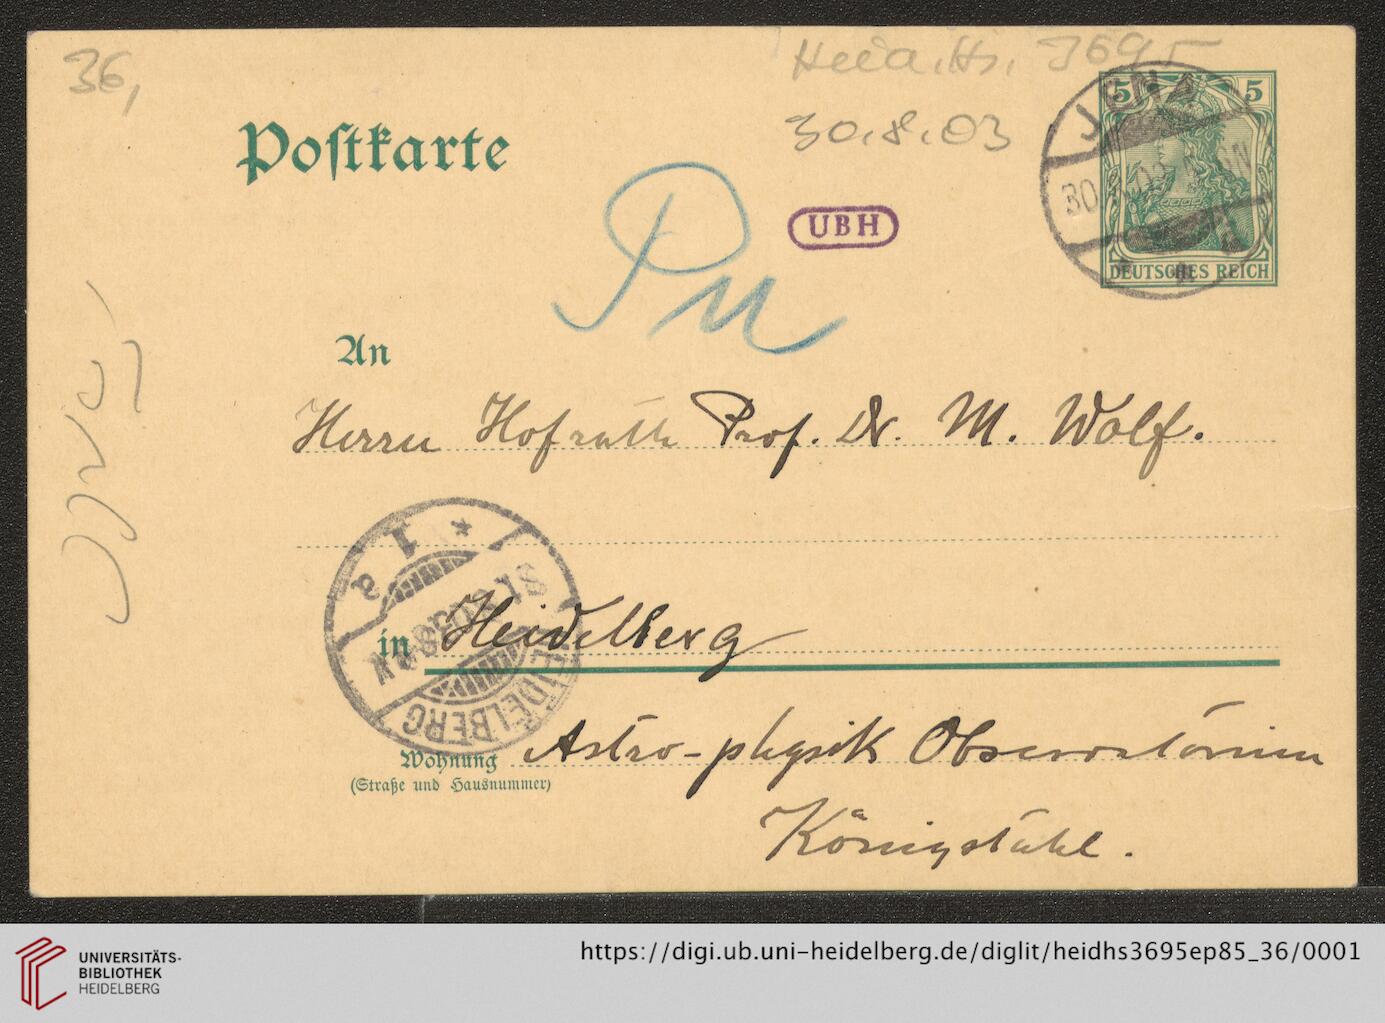 36,
Heid. Hs. 3695
30.8.03
Postkarte
UBH
JENA
30.
DEUTSCHES REICH
5 5
Pu
An
Herrn Hofrath Prof. Dr. M. Wolf.
in Heidelberg
HEIDELBERG
Wohnung Astro-physik Observatorium
(Straße und Hausnummer)
Königstuhl.
UNIVERSITÄTS-
BIBLIOTHEK
HEIDELBERG
https://digi.ub.uni-heidelberg.de/diglit/heidhs3695ep85_36/0001